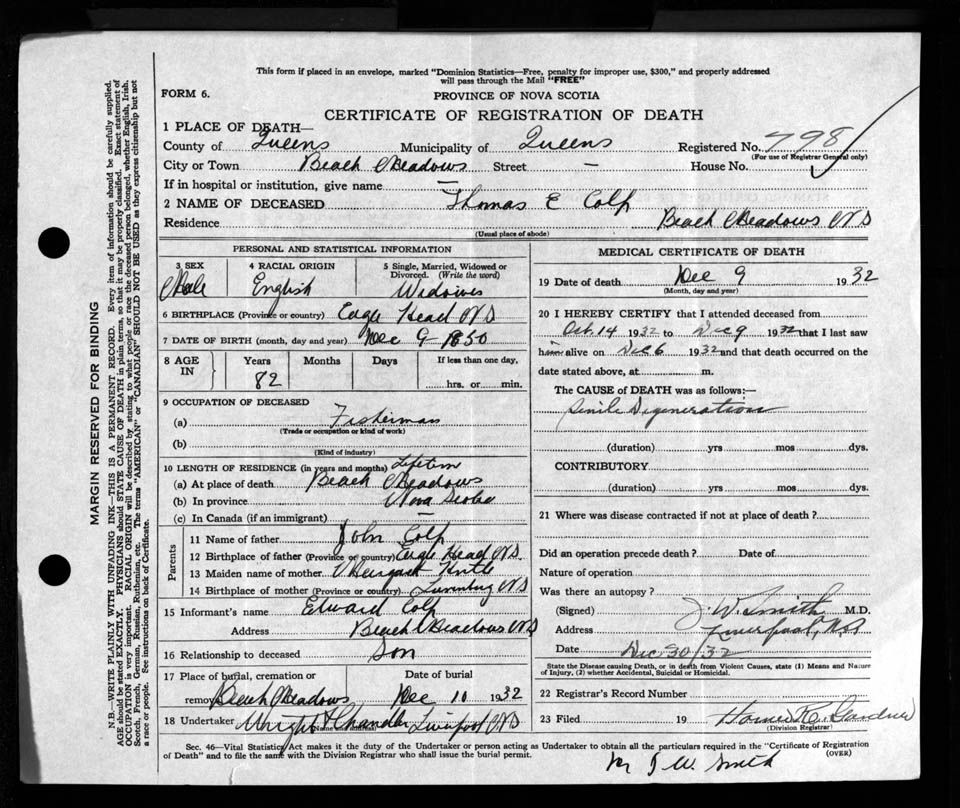 This form if placed in an envelope, marked "Dominion Statistics—Free, penalty for improper use, $300," and properly addressed
will pass through the Mail "FREE"
FORM 6.
PROVINCE OF NOVA SCOTIA
CERTIFICATE OF REGISTRATION OF DEATH
1 PLACE OF DEATH—
County of Queens Municipality of Queens Registered No. 798
(For use of Registrar General only)
City or Town Beach Meadows Street — House No.
If in hospital or institution, give name —
2 NAME OF DECEASED Thomas E Colp
Residence Beach Meadows N S
(Usual place of abode)
PERSONAL AND STATISTICAL INFORMATION
3 SEX 4 RACIAL ORIGIN 5 Single, Married, Widowed or Divorced. (Write the word)
Male English Widower
6 BIRTHPLACE (Province or country) Eagle Head N S
7 DATE OF BIRTH (month, day and year) Dec 9 1850
8 AGE IN Years Months Days If less than one day,
82 hrs. or min.
9 OCCUPATION OF DECEASED
(a) Fisherman
(Trade or occupation or kind of work)
(b)
(Kind of industry)
10 LENGTH OF RESIDENCE (in years and months) Lifetime
(a) At place of death Beach Meadows
(b) In province Nova Scotia
(c) In Canada (if an immigrant) —
Parents
11 Name of father John Colp
12 Birthplace of father (Province or country) Eagle Head N S.
13 Maiden name of mother Margaret
14 Birthplace of mother (Province or country) Lunenburg N S
15 Informant's name Edward Colp
Address Beach Meadows N S
16 Relationship to deceased Son
17 Place of burial, cremation or removal Beach Meadows Date of burial Dec 10 1932
18 Undertaker Wright & Chandler Liverpool N S
(Name and address)
MEDICAL CERTIFICATE OF DEATH
19 Date of death Dec 9 1932
(Month, day and year)
20 I HEREBY CERTIFY that I attended deceased from
Oct. 14 1932 to Dec 9 1932 that I last saw
him alive on Dec 6 1932 and that death occurred on the
date stated above, at m.
The CAUSE of DEATH was as follows:—
Senile Degeneration
(duration) yrs mos. dys.
CONTRIBUTORY
(duration) yrs. mos. dys.
21 Where was disease contracted if not at place of death?
Did an operation precede death? Date of
Nature of operation
Was there an autopsy?
(Signed) J. W. Smith M.D.
Address Liverpool, N.S.
Date Dec 30/32
State the Disease causing Death, or in death from Violent Causes, state (1) Means and Nature
of Injury, (2) whether Accidental, Suicidal or Homicidal.
22 Registrar's Record Number
23 Filed 19
(Division Registrar)
Sec. 46—Vital Statistics Act makes it the duty of the Undertaker or person acting as Undertaker to obtain all the particulars required in the "Certificate of Registration
of Death" and to file the same with the Division Registrar who shall issue the burial permit. (OVER)
J W. Smith
MARGIN RESERVED FOR BINDING
N.B.—WRITE PLAINLY WITH UNFADING INK—THIS IS A PERMANENT RECORD. Every item of information should be carefully supplied.
AGE should be stated EXACTLY. PHYSICIANS should STATE CAUSE OF DEATH in plain terms, so that it may be properly classified. Exact statement of
OCCUPATION is very important. RACIAL ORIGIN will be described by stating to what people or race the deceased person belonged, whether English, Irish,
Scotch, French, German, Russian, Ruthenian, etc. The terms "AMERICAN" or "CANADIAN" SHOULD NOT BE USED as they express citizenship but not
a race or people. See instructions on back of Certificate.